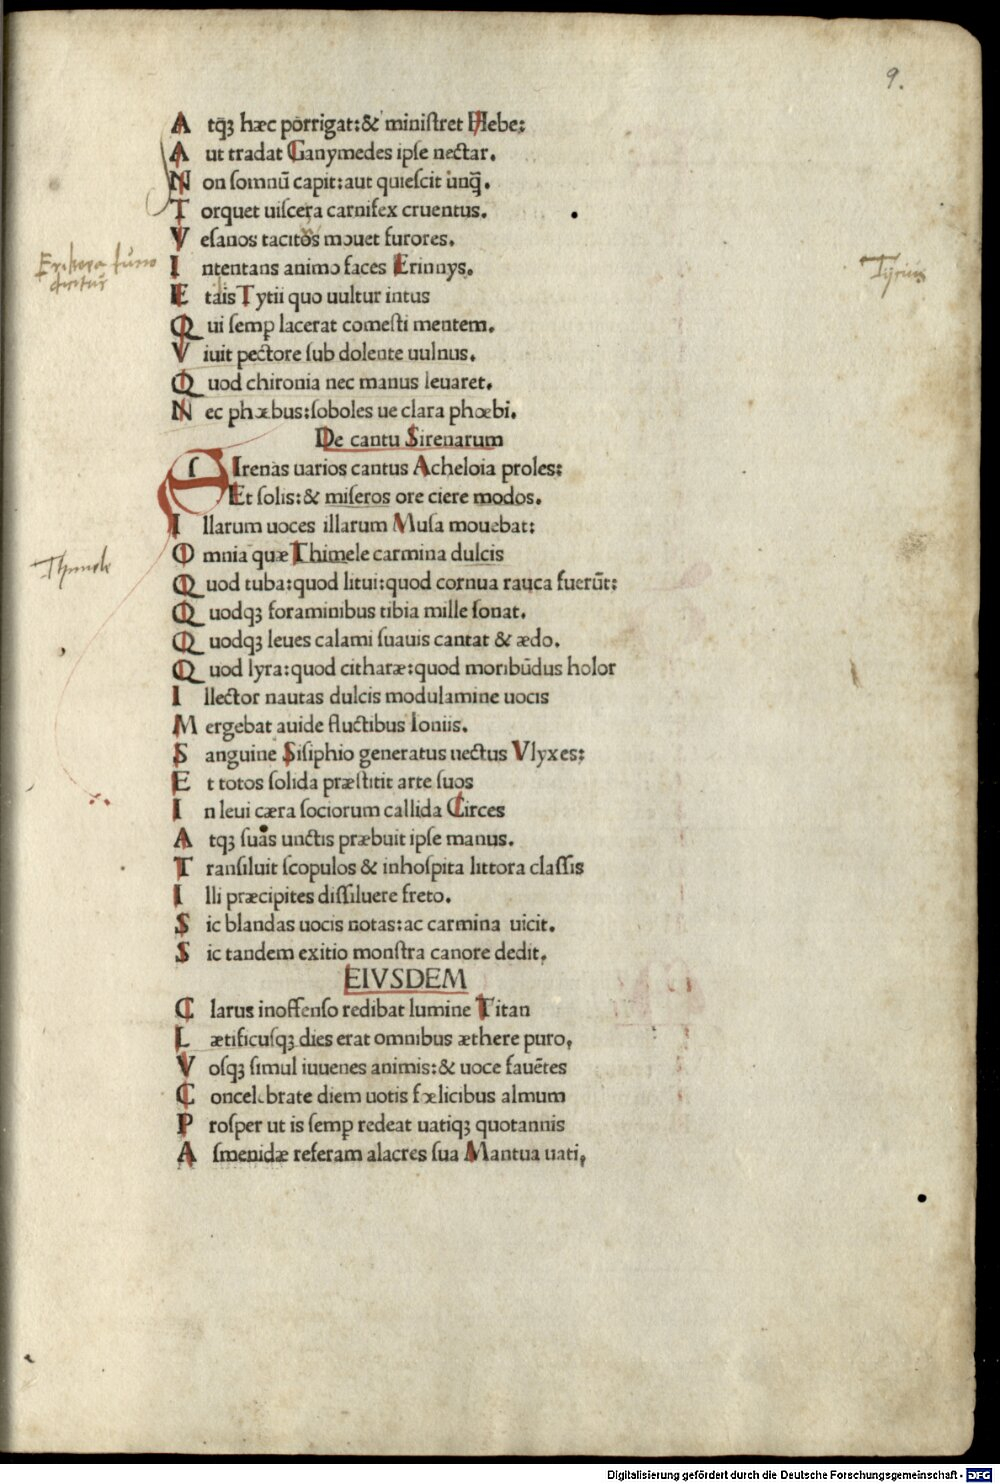 9.
A tq̃ꝫ hæc porrigat:& ministret Hebe:
A ut tradat Ganymedes ipse nectar.
N on somnū capit:aut quiescit unq̃.
T orquet uiscera carnifex cruentus.
V esanos tacitos mouet furores.
I ntentans animo faces Erinnys.
E tais Tytii quo uultur intus
Q ui semꝑ lacerat comesti mentem.
V iuit pectore sub dolente uulnus.
Q uod chironia nec manus leuaret.
N ec phœbus:soboles ue clara phœbi.
De cantu Sirenarum
SIrenas uarios cantus Acheloia proles:
Et solis:& miseros ore ciere modos.
I llarum uoces illarum Musa mouebat:
O mnia quæ Thimele carmina dulcis
Q uod tuba:quod litui:quod cornua rauca fuerūt:
Q uodqꝫ foraminibus tibia mille sonat.
Q uodqꝫ leues calami suauis cantat & ædo.
Q uod lyra:quod citharæ:quod moribūdus holor
I llector nautas dulcis modulamine uocis
M ergebat auide fluctibus Ioniis.
S anguine Sisiphio generatus uectus Vlyxes:
E t totos solida præstitit arte suos
I n leui cæra sociorum callida Circes
A tqꝫ suas unctis præbuit ipse manus.
T ransiluit scopulos & inhospita littora classis
I lli præcipites dissiluere freto.
S ic blandas uocis notas:ac carmina uicit.
S ic tandem exitio monstra canore dedit.
EIVSDEM
C larus inoffenso redibat lumine Titan
L ætificusqꝫ dies erat omnibus æthere puro,
V osqꝫ simul iuuenes animis:& uoce fauētes
C oncelebrate diem uotis fœlicibus almum
P rosper ut is semꝑ redeat uatiqꝫ quotannis
A smenidæ referam alacres sua Mantua uati,
Tyrius
Digitalisierung gefördert durch die Deutsche Forschungsgemeinschaft - DFG